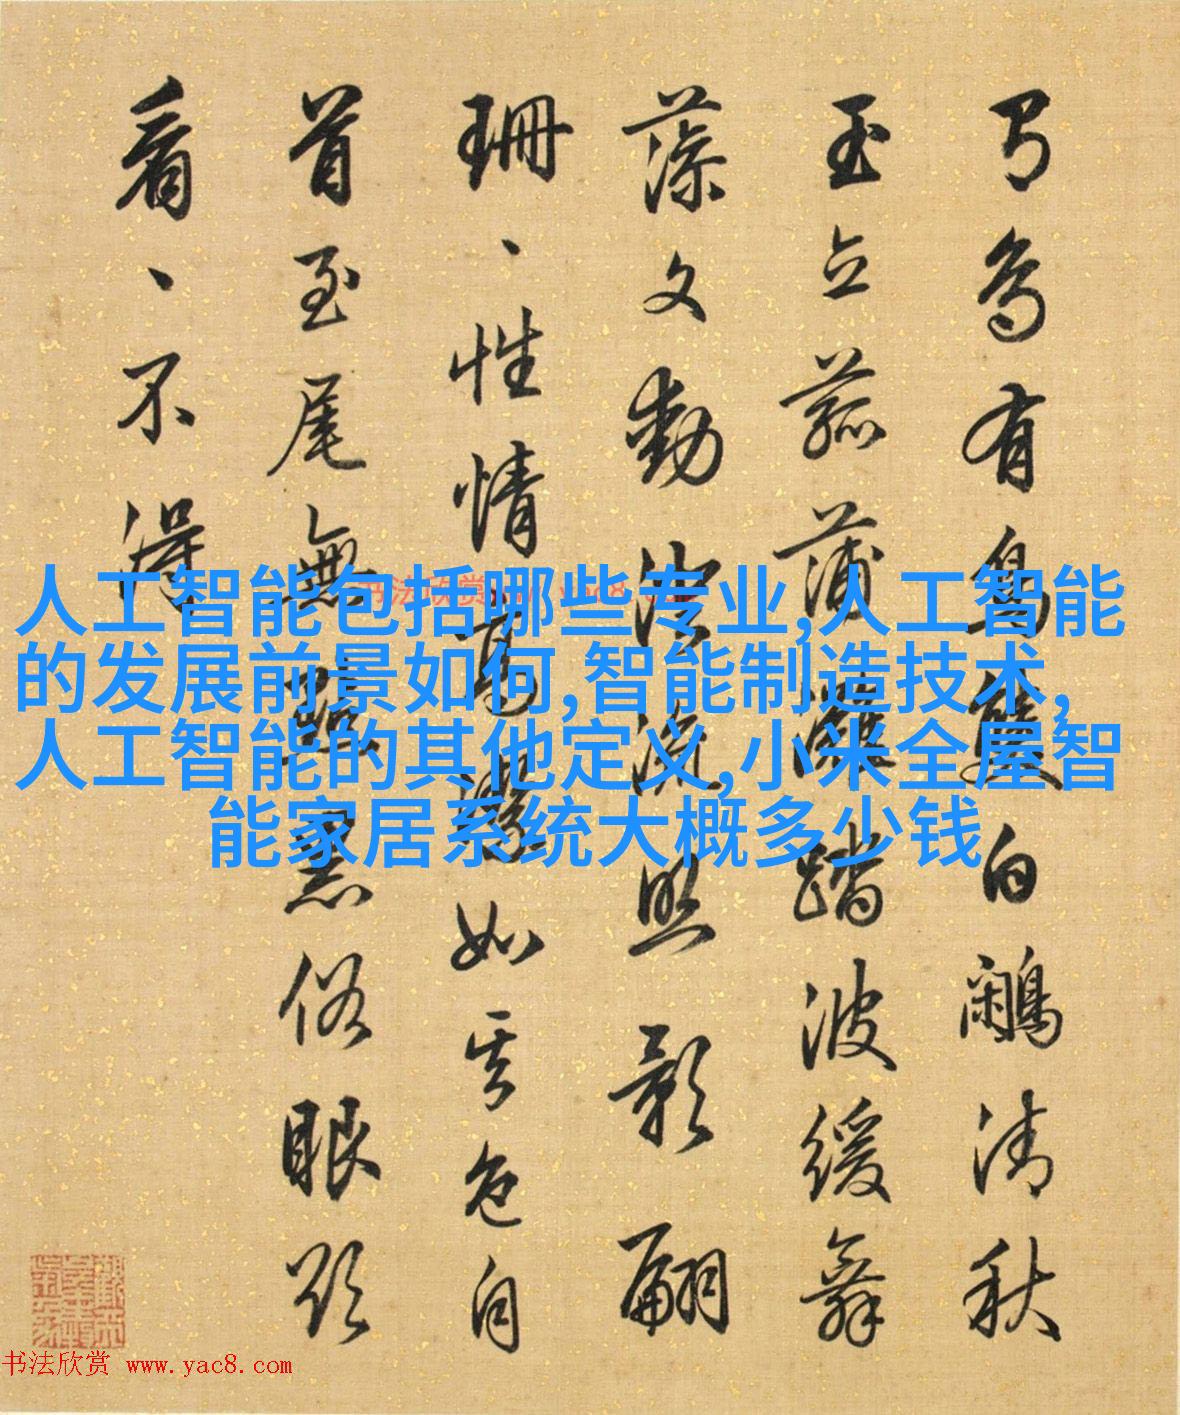 鳥有鳥雙白鷳清秋
玉立菰蒲灘踏波緩舞
藻文動澄流照影翩
珊、性情高潔如其色自
首至尾無點黑俗眼欲
看、不得
人工智能包括哪些专业,人工智能
的发展前景如何,智能制造技术,
人工智能的其他定义,小米全屋智
能家居系统大概多少钱
书法欣赏 www.yac8.com